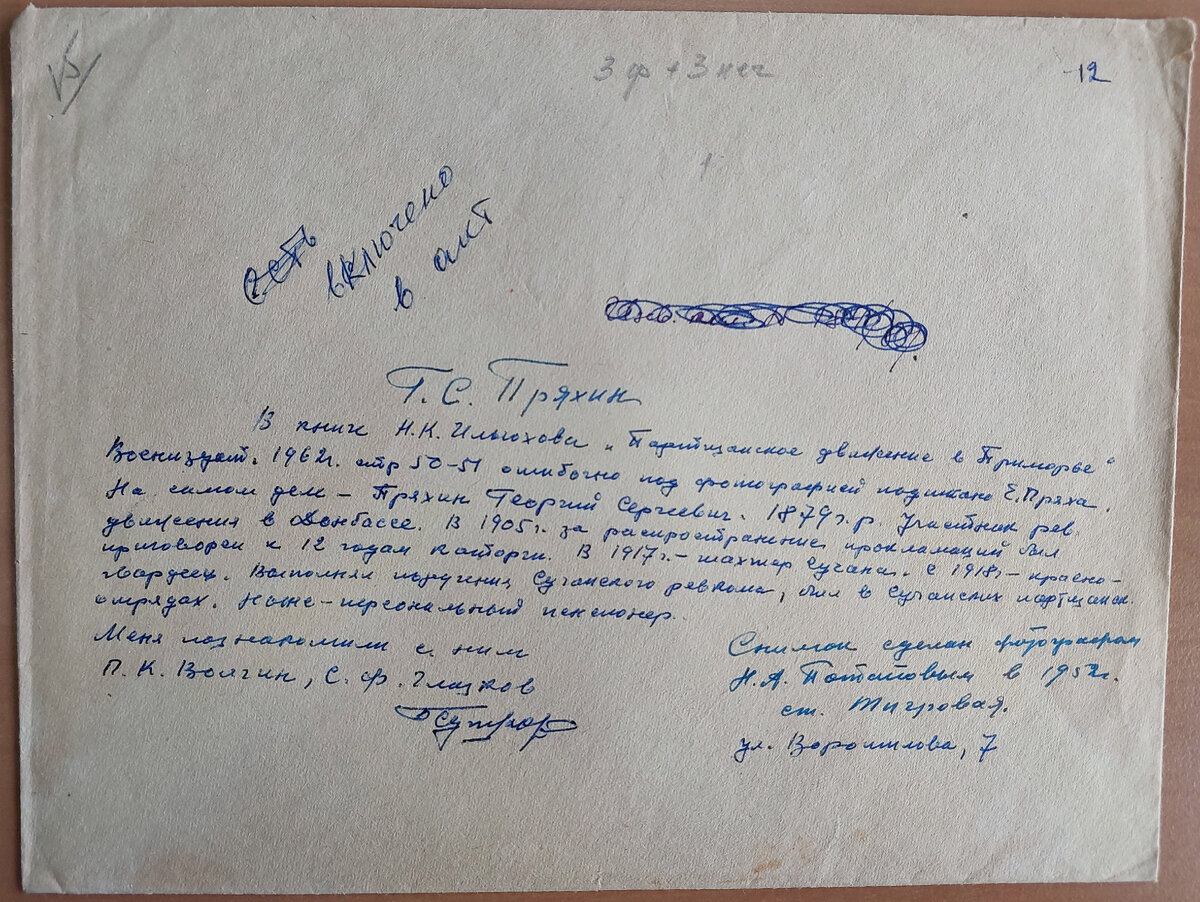 V5
3 ф + 3 нег
12
1
есть
включено
в акт
Г. С. Пряхин
В книге Н.К. Ильюхова „Партизанское движение в Приморье“
Воениздат. 1962г. стр 50-51 ошибочно под фотографией подписано Е. Пряха.
На самом деле – Пряхин Георгий Сергеевич. 1879 г.р. Участник рев.
движения в Донбассе. В 1905г. за распространение прокламаций был
приговорен к 12 годам каторги. В 1917г. – шахтер Сучана. С 1918г – красно-
гвардеец. Выполнял поручения Сучанского ревкома, был в Сучанских партизанск.
отрядах. Ныне – персональный пенсионер.
Меня познакомили с ним
П. К. Волгин, С. Ф. Глазков
Снимок сделан фотографом
Н. А. Потаповым в 1957г.
ст. Тигровая.
ул. Ворошилова, 7